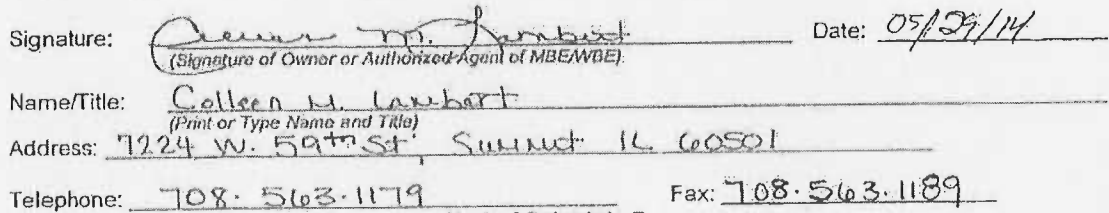 Signature: Colleen M. Lambert Date: 05/29/14
(Signature of Owner or Authorized Agent of MBE/WBE)
Name/Title: Colleen M. Lambert
(Print or Type Name and Title)
Address: 7224 W. 59th St, Summit IL 60501
Telephone: 708.563.1179 Fax: 708.563.1189